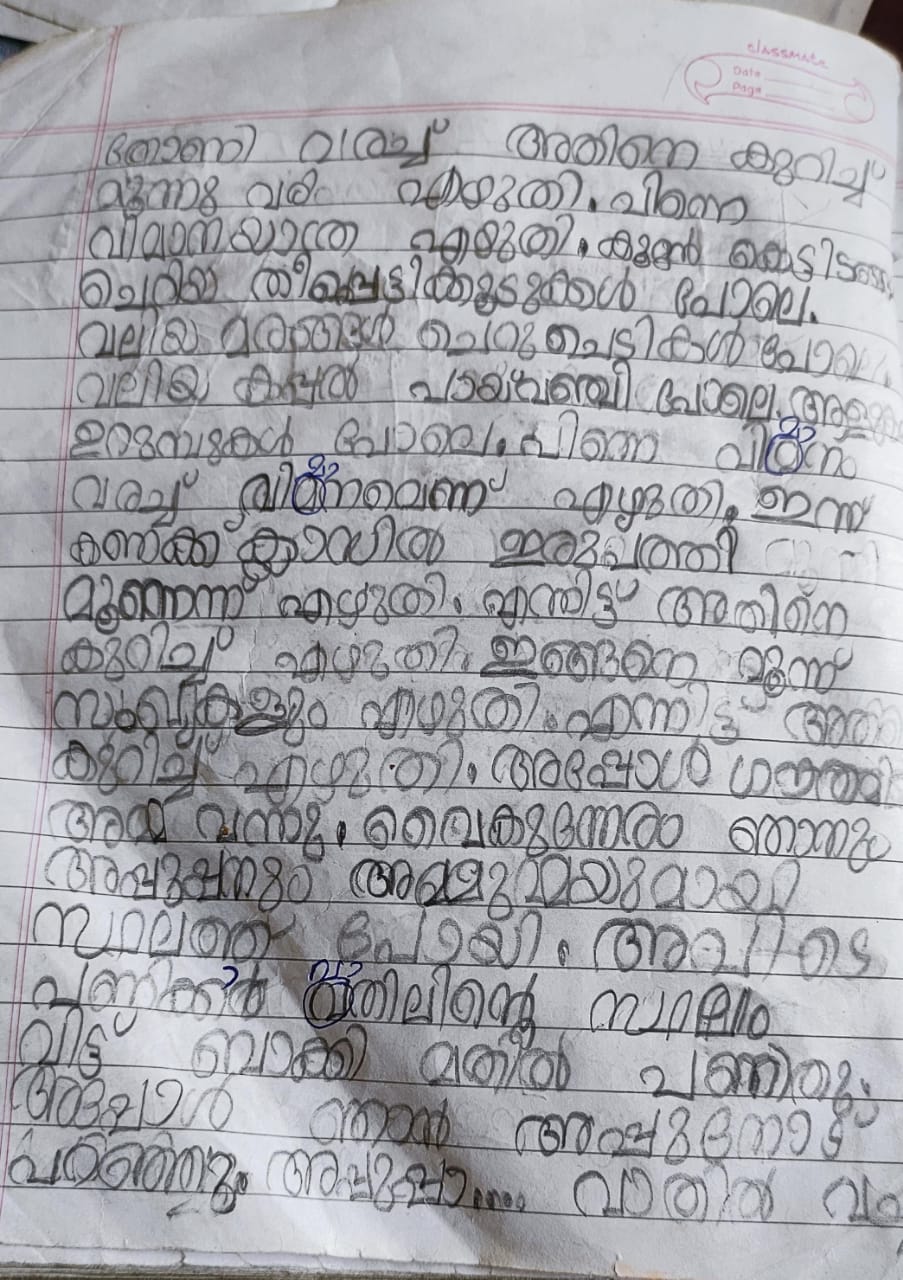 classmate
Date
Page
തോണി വരച്ച് അതിനെ കുറിച്ച്
മൂന്നു വരി എഴുതി. പിന്നെ
വിമാനയാത്ര എഴുതി. കുറെ
ചെറിയ തീപ്പെട്ടിക്കൂടുകൾ പോലെ.
വലിയ മരങ്ങൾ ചെറുചെടികൾ പോലെ
വലിയ കപ്പൽ പായ് വഞ്ചി പോലെ.
ഉറുമ്പുകൾ പോലെ. പിന്നെ വിമാനം
വരച്ച് വിമാനമെന്ന് എഴുതി. ഇന്ന്
കണക്ക് ക്ലാസിൽ ഇരുപത്തി
മൂന്നെന്ന് എഴുതി. എന്നിട്ട് അതിനെ
കുറിച്ച് എഴുതി. ഇങ്ങനെ മൂന്ന്
സംഖ്യകളും എഴുതി. എന്നിട്ട്
കുറിച്ച് എഴുതി. അപ്പോൾ
അമ്മ വന്നു. വൈകുന്നേരം ഞാനും
അപ്പൂപ്പനും അമ്മൂമ്മയുമായി
സ്ഥലത്ത് പോയി. അവിടെ
പണിക്കർ മതിലിന്റെ സ്ഥലം
വിട്ട് ബാക്കി മതിൽ പണിതു.
അപ്പോൾ ഞാൻ അപ്പൂപ്പനോട്
പറഞ്ഞു. അപ്പൂപ്പാ.....